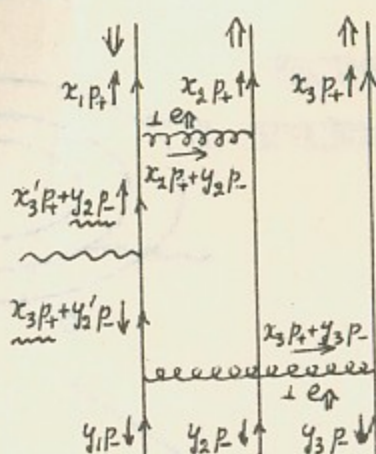 ⇓ ⇑ ⇑
x₁p₊↑ x₂p₊↑ x₃p₊↑
⊥ e⇑
x₂p₊+y₂p₋
x₃'p₊+y₂p₋↑
x₃p₊+y₂'p₋↓
x₃p₊+y₃p₋
⊥ e⇑
y₁p₋↓ y₂p₋↓ y₃p₋↓